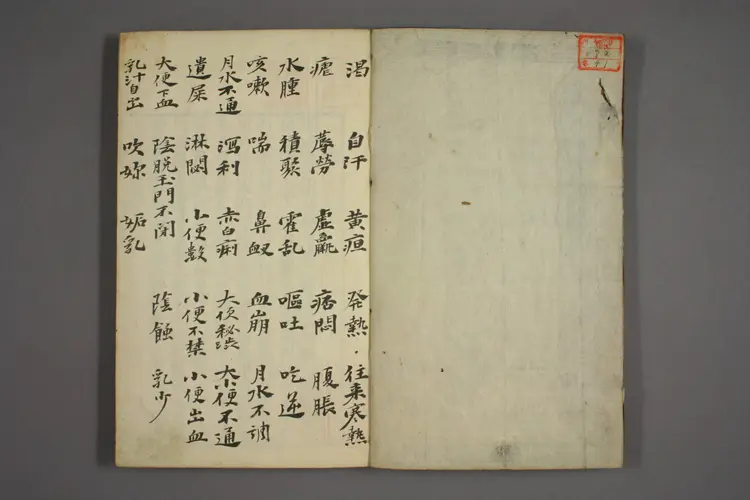 渇 自汗 黄疸 発熱・往来寒熱
瘧 蓐勞 虚羸 痞悶 腹脹
水腫 積聚 霍乱 嘔吐 吃逆
咳嗽 喘 鼻衂 血崩 月水不調
月水不通 瀉利 赤白痢 大便秘渋 大小便不通
遺屎 淋閟 小便数 小便不禁 小便出血
大便下血 陰脱玉門不閉 陰蝕 乳少
乳汁自出 吹妳 妬乳